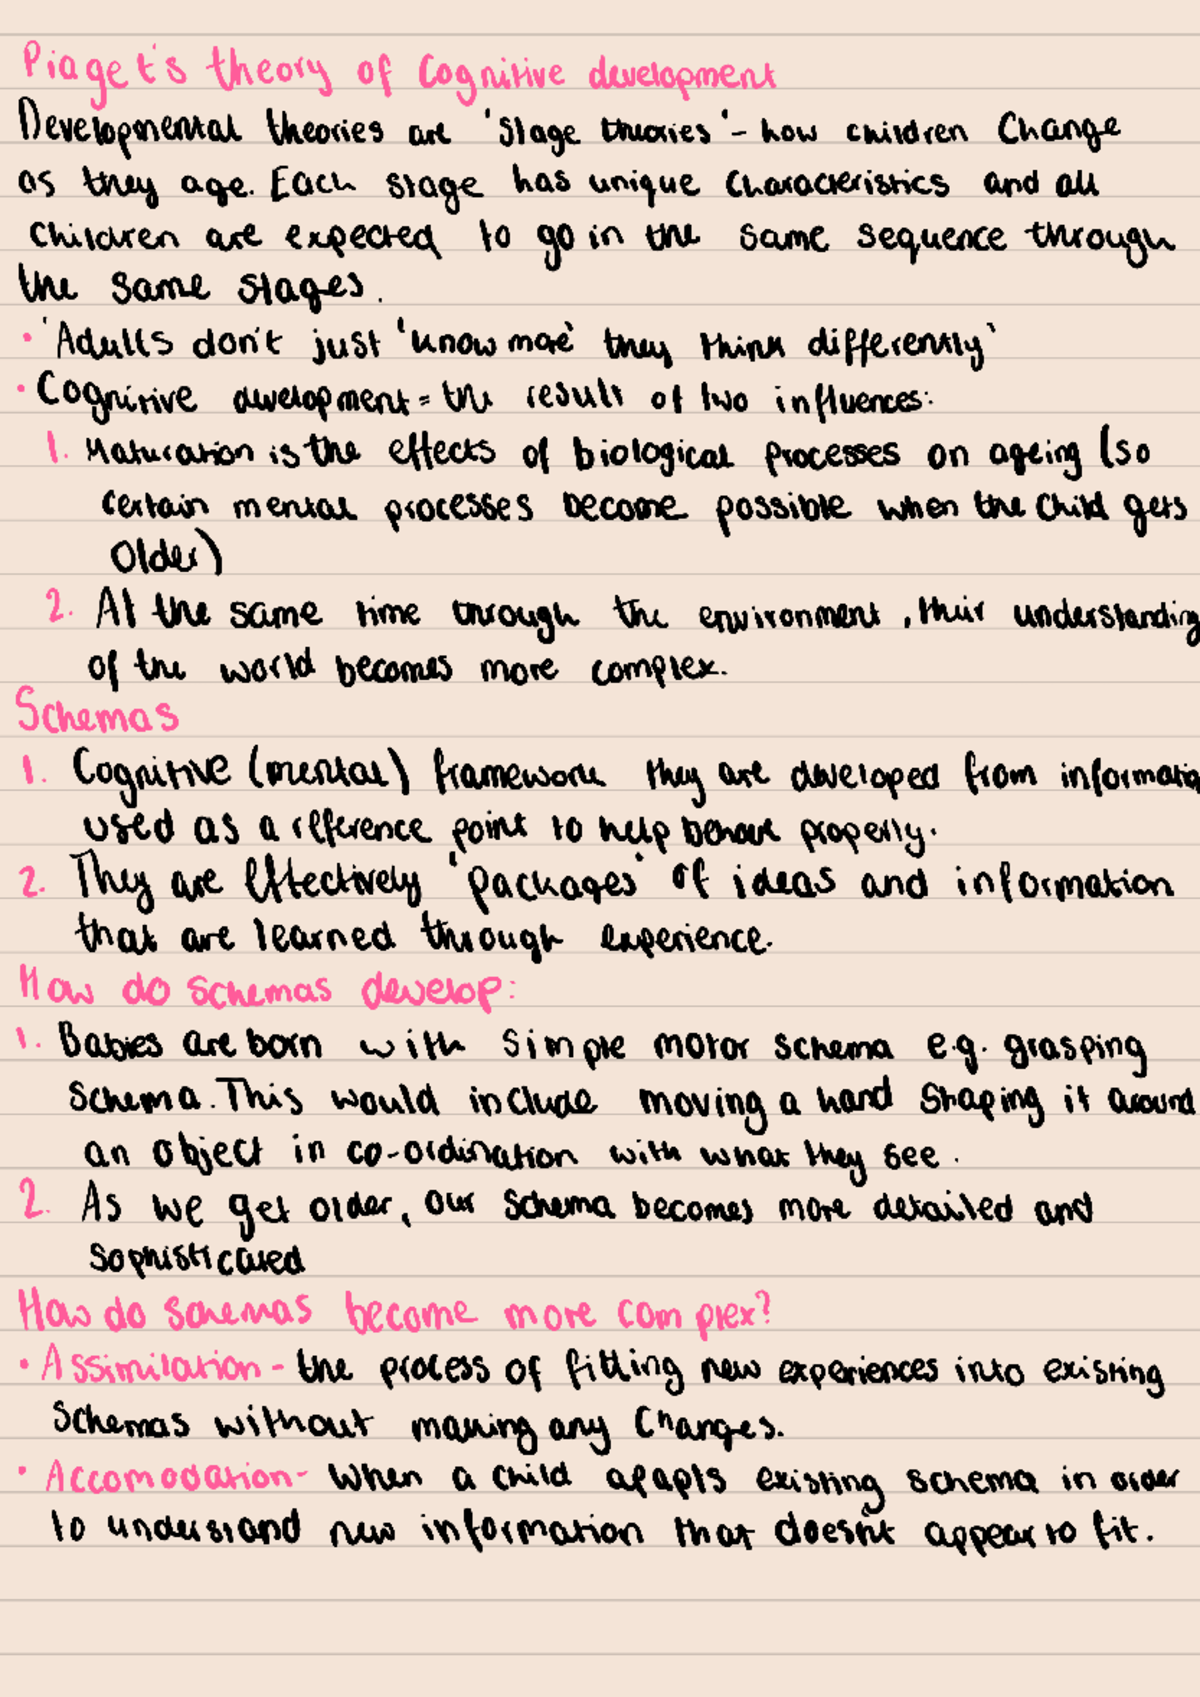 Piaget's theory of Cognitive development
Developmental theories are 'Stage theories' - how children Change
as they age. Each stage has unique Characteristics and all
Children are expected to go in the same sequence through
the same stages.
• 'Adults don't just 'know more' they think differently'
• Cognitive development = the result of two influences:
1. Maturation is the effects of biological processes on ageing (so
certain mental processes become possible when the Child gets
Older)
2. At the same time through the environment, their understanding
of the world becomes more complex.
Schemas
1. Cognitive (mental) framework they are developed from informatio
used as a refference point to help behave properly.
2. They are Effectively 'packages' of ideas and information
that are learned through experience.
How do schemas develop:
1. Babies are born with simple motor schema e.g. grasping
Schema. This would include moving a hand Shaping it around
an object in co-ordination with what they see.
2. As we get older, our schema becomes more detailed and
Sophisticated
How do schemas become more complex?
• Assimilation - the process of fitting new experiences into existing
Schemas without making any Changes.
• Accomodation - When a child apapts existing schema in order
to understand new information that doesn't appear to fit.